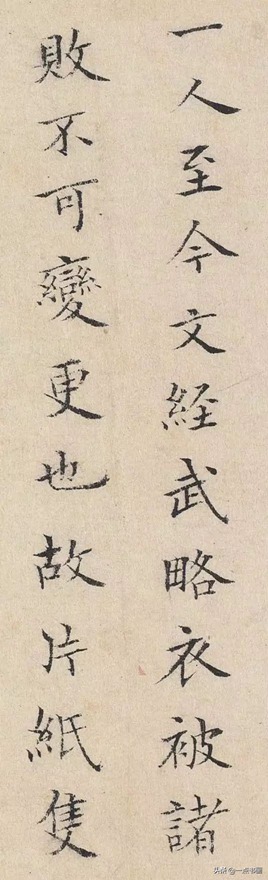 一人至今文経武略衣被諸
敗不可變更也故片紙隻
头条@一点书画